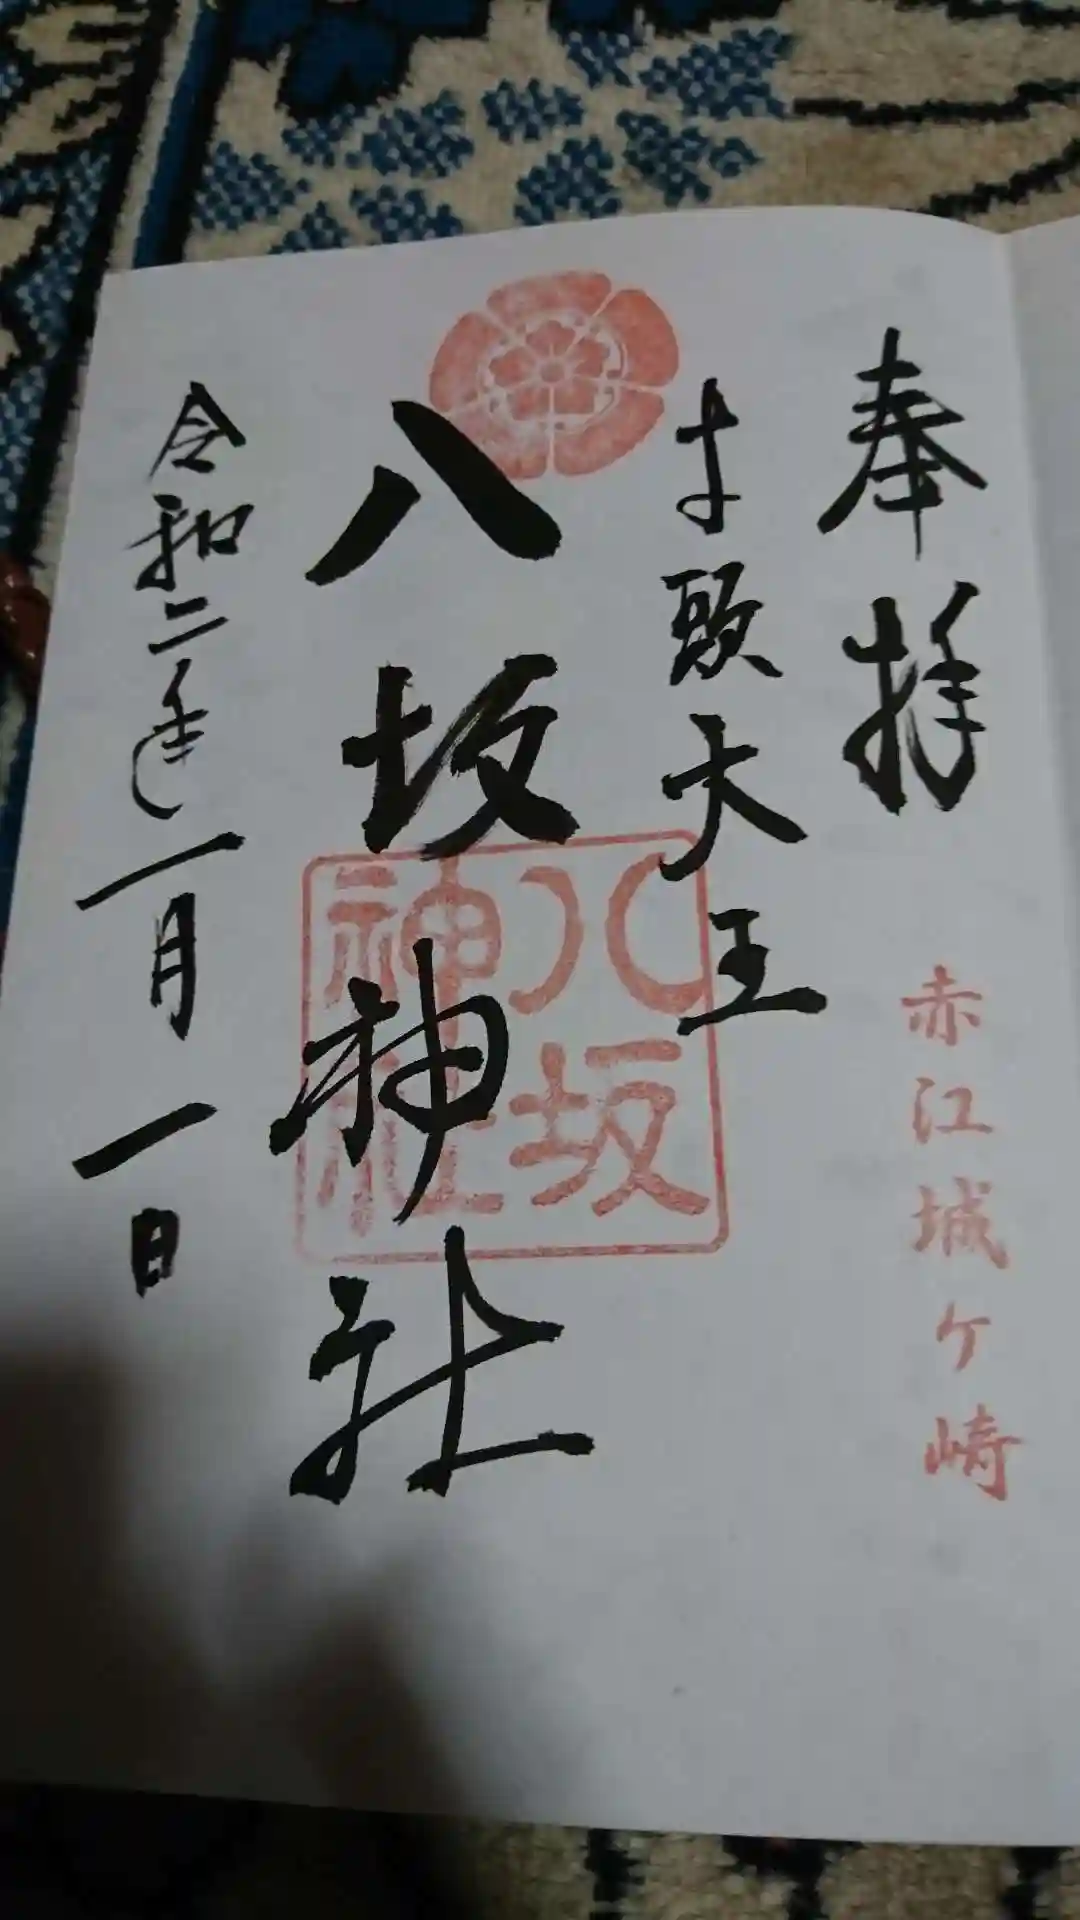 奉拝
赤江城ケ崎
牛頭大王
八坂神社
八坂
神社
令和二年一月一日